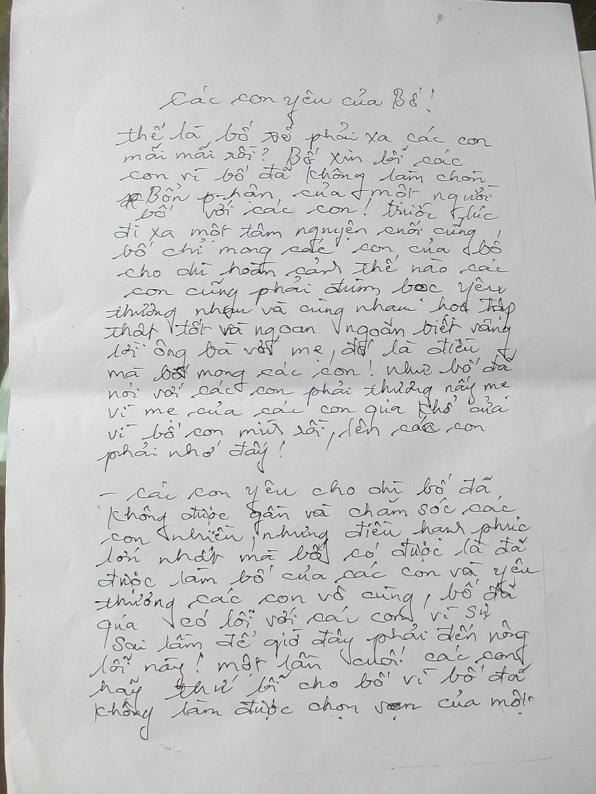 Các con yêu của Bố!
thế là bố sẽ phải xa các con
mãi mãi rồi? Bố xin lỗi các
con vì bố đã không làm chòn
Bổn phận của một người
bố với các con! trước lúc
đi xa một tâm nguyện cuối cùng,
bố chỉ mong các con của bố
cho dù hoàn cảnh thế nào các
con cũng phải đùm bọc yêu
thương nhau và cùng nhau học tập
thật tốt và ngoan ngoãn biết vâng
lời ông bà với mẹ, đó là điều
mà bố mong các con! như bố đã
nói với các con phải thương nấy mẹ
vì mẹ của các con qúa khổ
vì bố con mìn rồi, lên các con
phải nhớ đấy!
- Các con yêu cho dù bố đã
không được gần và chăm sóc các
con nhiều, nhưng điều hạnh phúc
lớn nhất mà bố có được là đã
được làm bố của các con và yêu
thương các con vô cùng, bố đã
qúa có lỗi với các con vì sự
Sai lầm để giờ đây phải đến nông
lỗi này! một lần cuối các con
hãy thứ lỗi cho bố vì bố đã
không làm được chọn vẹn của một